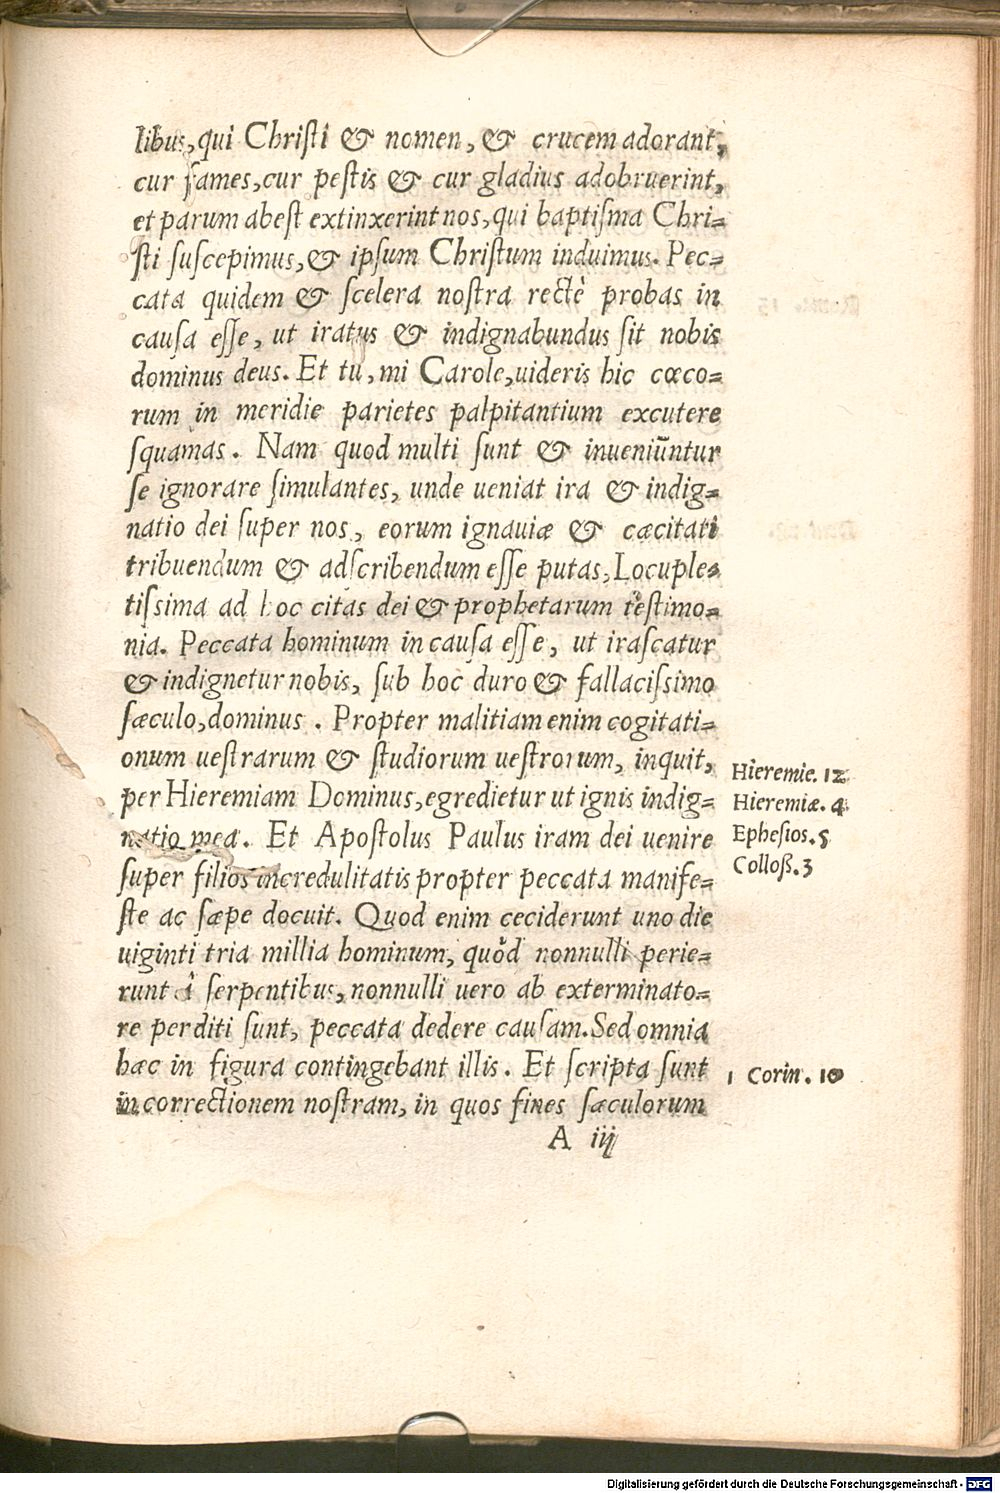 libus, qui Christi & nomen, & crucem adorant,
cur fames, cur pestis & cur gladius adobruerint,
et parum abest extinxerint nos, qui baptisma Chri=
sti suscepimus, & ipsum Christum induimus. Pec=
cata quidem & scelera nostra rectè probas in
causa esse, ut iratus & indignabundus sit nobis
dominus deus. Et tu, mi Carole, uideris hic cœco=
rum in meridie parietes palpitantium excutere
squamas. Nam quod multi sunt & inueniūntur
se ignorare simulantes, unde ueniat ira & indig=
natio dei super nos, eorum ignauiæ & cæcitati
tribuendum & adscribendum esse putas, Locuple=
tissima ad hoc citas dei & prophetarum testimo=
nia. Peccata hominum in causa esse, ut irascatur
& indignetur nobis, sub hoc duro & fallacissimo
sæculo, dominus. Propter malitiam enim cogitati=
onum uestrarum & studiorum uestrorum, inquit,
per Hieremiam Dominus, egredietur ut ignis indig=
natio mea. Et Apostolus Paulus iram dei uenire
super filios incredulitatis propter peccata manife=
ste ac sæpe docuit. Quod enim ceciderunt uno die
uiginti tria millia hominum, quòd nonnulli perie=
runt à serpentibus, nonnulli uero ab exterminato=
re perditi sunt, peccata dedere causam. Sed omnia
hæc in figura contingebant illis. Et scripta sunt
in correctionem nostram, in quos fines sæculorum
A iij
Hieremie. 12
Hieremiæ. 4
Ephesios. 5
Colloß. 3
1 Corin. 10
Digitalisierung gefördert durch die Deutsche Forschungsgemeinschaft - DFG